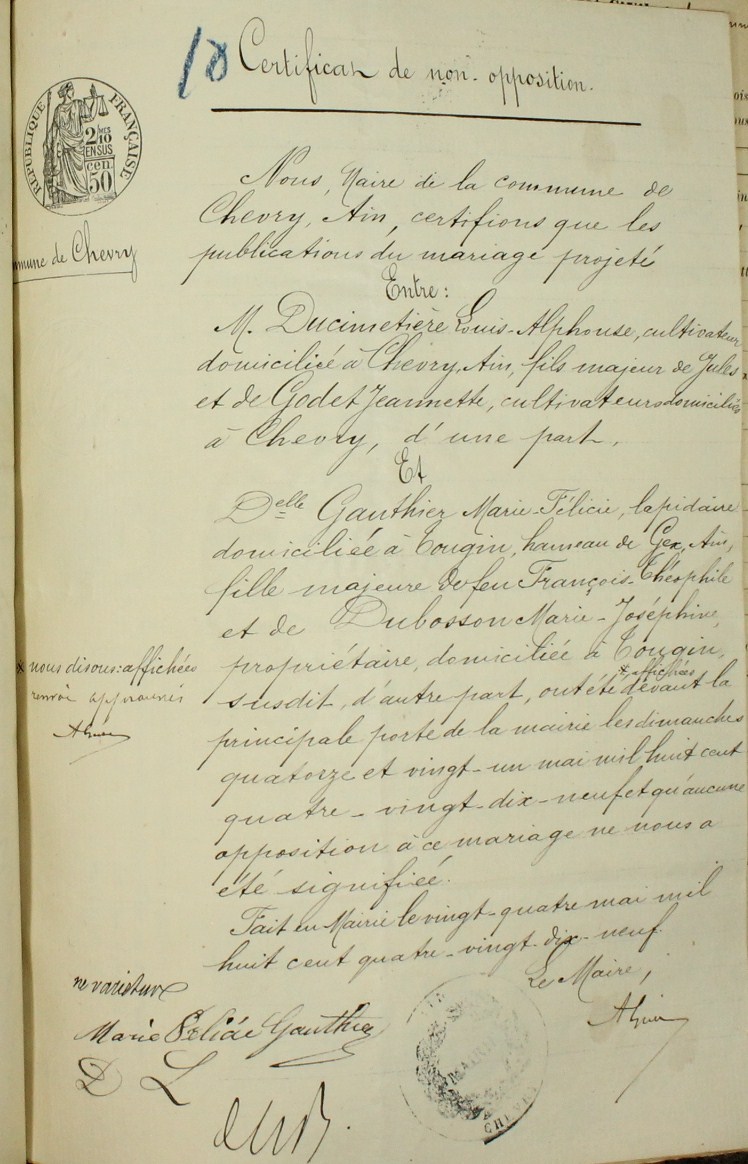 10
Certificat de non-opposition.
RÉPUBLIQUE FRANÇAISE
2/10 EN SUS
50 cen
mmune de Chevry
Nous, Maire de la commune de
Chevry, Ain, certifions que les
publications du mariage projeté
Entre:
M. Ducimetière Louis-Alphonse, cultivateur
domicilié à Chevry, Ain, fils majeur de Jules
et de Godet Jeannette, cultivateurs domiciliés
à Chevry, d'une part,
Et
Delle Gauthier Marie-Félicie, lapidaire
domiciliée à Tougin, hameau de Gex, Ain,
fille majeure de feu François-Théophile
et de Dubosson Marie-Joséphine,
propriétaire, domiciliée à Tougin,
x affichées
susdit, d'autre part, ont été devant la
principale porte de la mairie les dimanches
quatorze et vingt-un mai mil huit cent
quatre-vingt-dix-neuf et qu'aucune
opposition à ce mariage ne nous a
été signifiée.
Fait en Mairie le vingt-quatre mai mil
huit cent quatre-vingt-dix-neuf
Le Maire,
x nous disons: affichées
renvoi approuvé
ne varietur
Marie Félicie Gauthier
D L
MAIRIE
CHEVRY